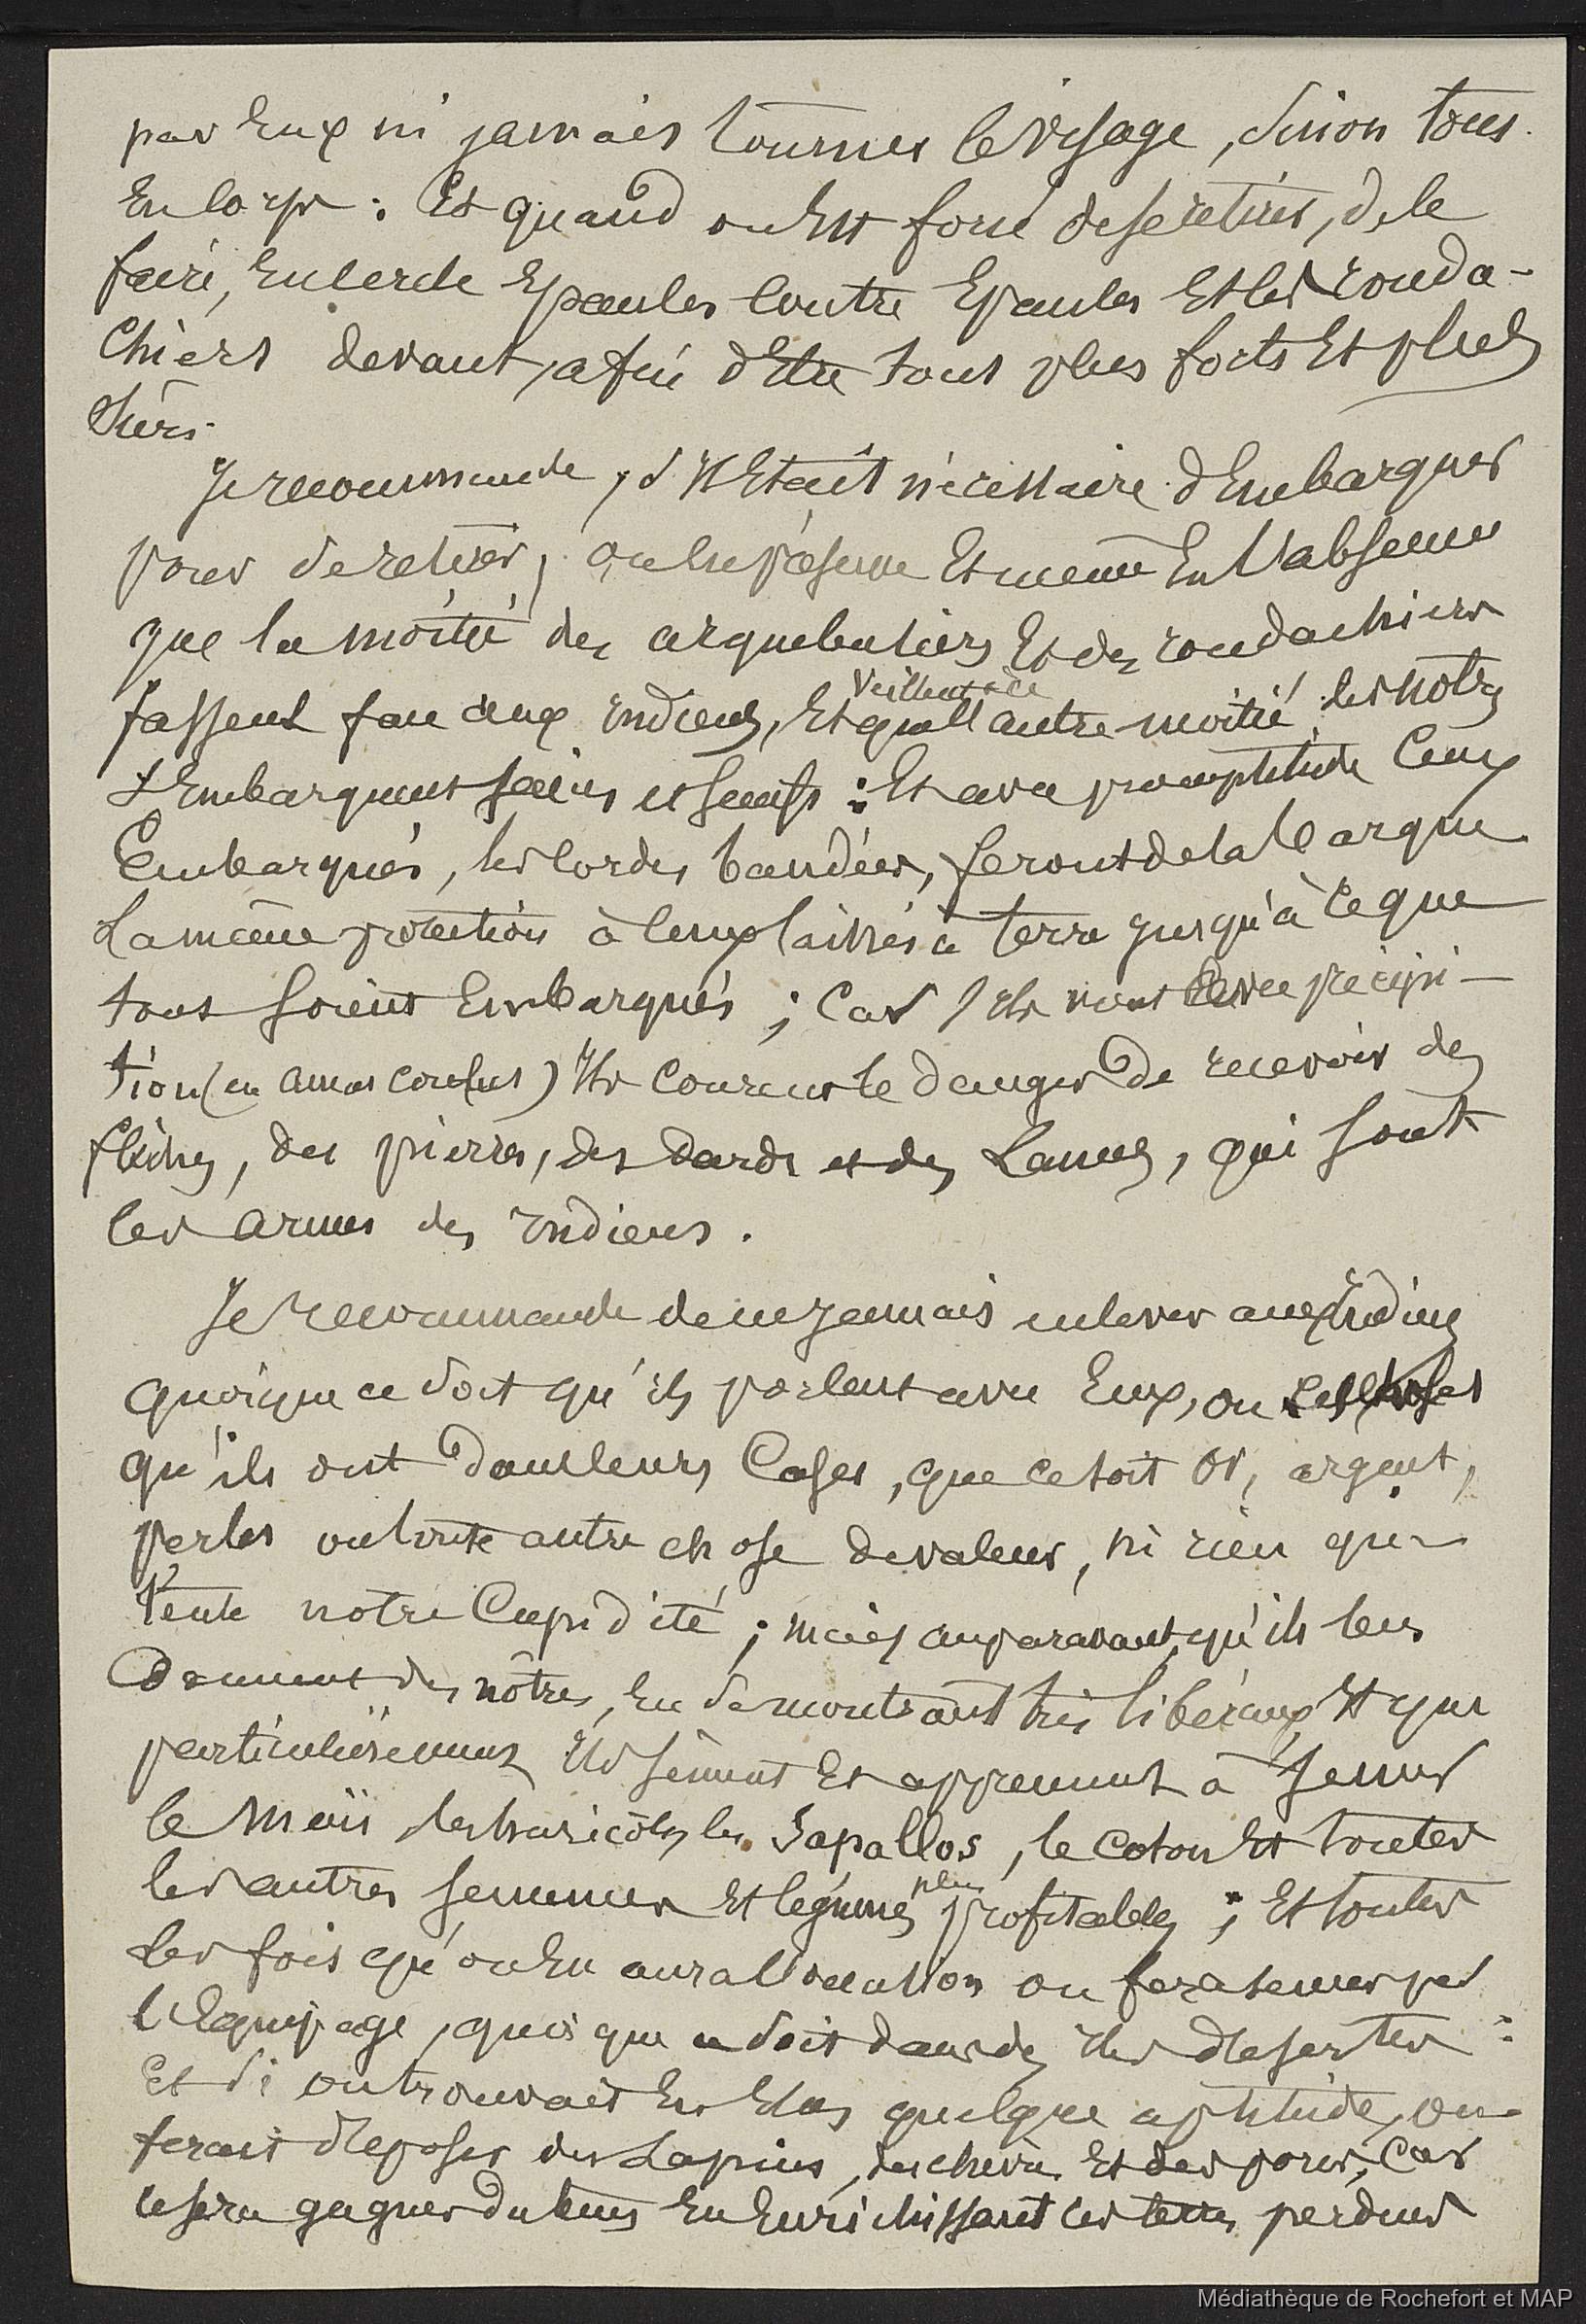 par Eux ni jamais tourner le visage, sinon tous
En corps : Et quand on Est forcé de se retirer, de le
faire, En cercle Epaules contre Epaules Et les ronda-
chiers devant, afin d'Etre tous plus forts Et plus
sûrs.
Je recommande, s'Il Etait nécessaire d'Embarquer
pour se retirer, en leur présence Et même En l'absence
que la moitié des arquebusiers Et des rondachiers
fassent face aux Indiens, Et que l'autre moitié veillent à ce les notres
s'Embarquent sains et saufs : Et avec promptitude Ceux
Embarqués, les cordes bandées, feront de la barque
la même protection à ceux laissés à terre jusqu'à ce que
tous soient Embarqués ; Car s'Ils vont avec précipi-
tion (en amas confus) Ils courent le danger de recevoir des
flèches, des pierres, des dards et des Lances, qui sont
les armes des Indiens.
Je recommande de ne jamais enlever aux Indiens
quoique ce soit qu'ils portent avec Eux, ou les choses
qu'ils ont dans leurs Cases, que ce soit or, argent,
perles ou toute autre chose de valeur, ni rien que
tente notre Cupidité ; mais auparavant qu'ils leur
donnent des nôtres, En se montrant très libéraux Et que
particulièrement Ils sèment Et apprennent à semer
le maïs les haricots, les Sapallos, le coton Et toutes
les autres semences Et légumes plus profitables ; Et toutes
les fois qu'on En aura l'occasion on fera semer par
l'Equipage, quoi que ce soit dans des îles désertes :
Et si on trouvait En Elles quelque aptitude, on
ferait déposer des Lapins, des chèvres Et des porcs, Car
ce sera gagner du temps En Enrichissant ces terres perdues
Médiathèque de Rochefort et MAP